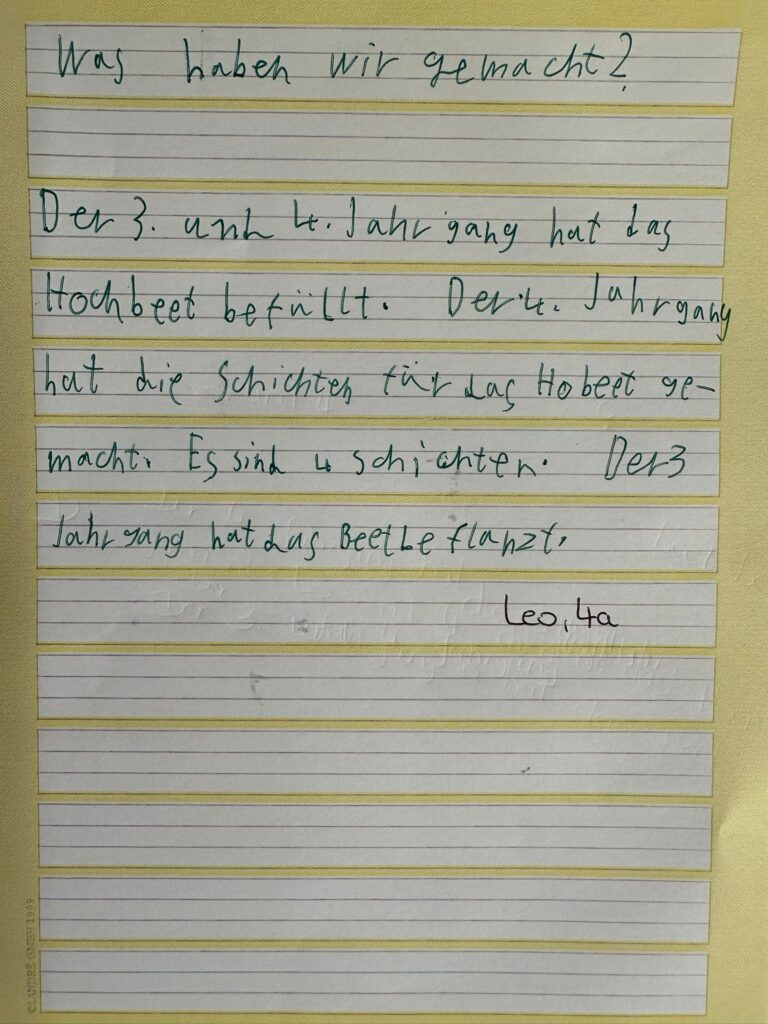 Was haben wir gemacht?
Der 3. und 4. Jahrgang hat das
Hochbeet befüllt. Der 4. Jahrgang
hat die Schichten für das Hobeet ge-
macht. Es sind 4 schichten. Der 3
Jahrgang hat das Beet beflanzt.
Leo, 4a
©LANDRÉ GMBH 1999